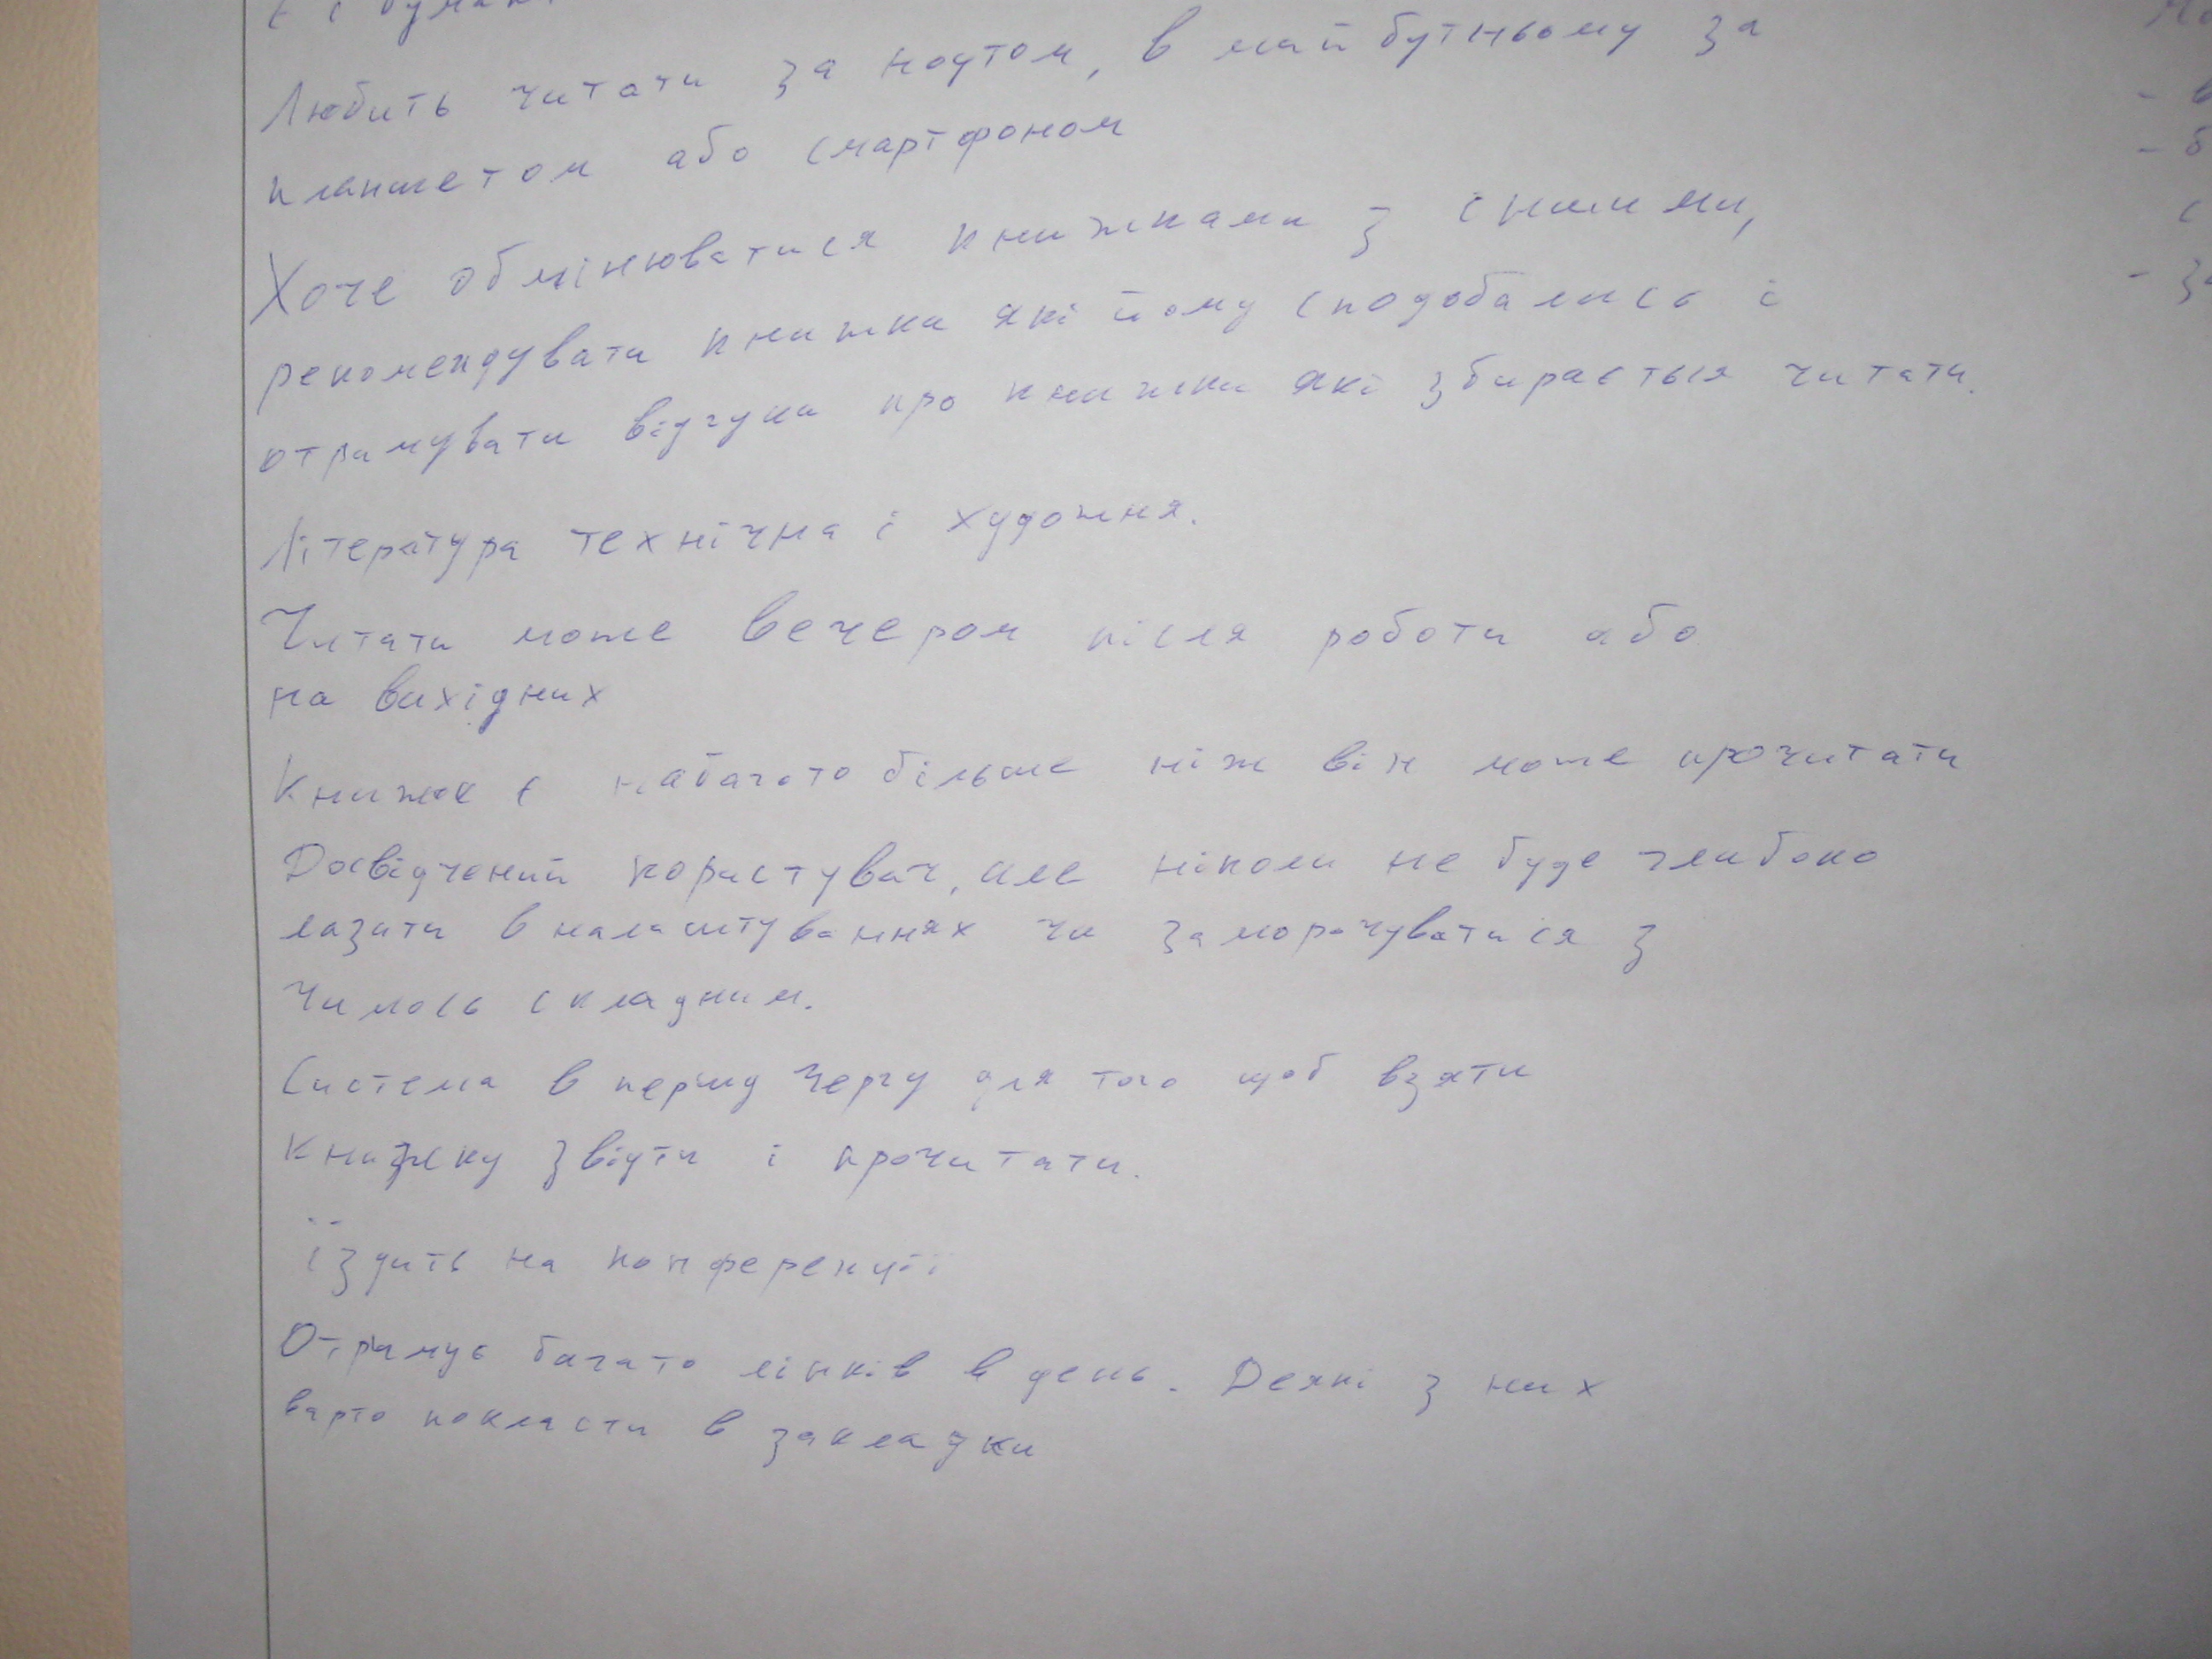 Любить читати за ноутом, в майбутньому за
планшетом або смартфоном
Хоче обмінюватися книжками з іншими,
рекомендувати книжки які йому сподобались і
отримувати відгуки про книжки які збирається читати.
Література технічна і художня.
Читати може вечером після роботи або
на вихідних
Книжок є набагато більше ніж він може прочитати
Досвідчений користувач, але ніколи не буде глибоко
лазити в налаштуваннях чи заморочуватися з
чимось складним.
Система в першу чергу для того щоб взяти
книжку звідти і прочитати.
їздить на конференції
Отримує багато лінків в день. Деякі з них
варто покласти в закладки